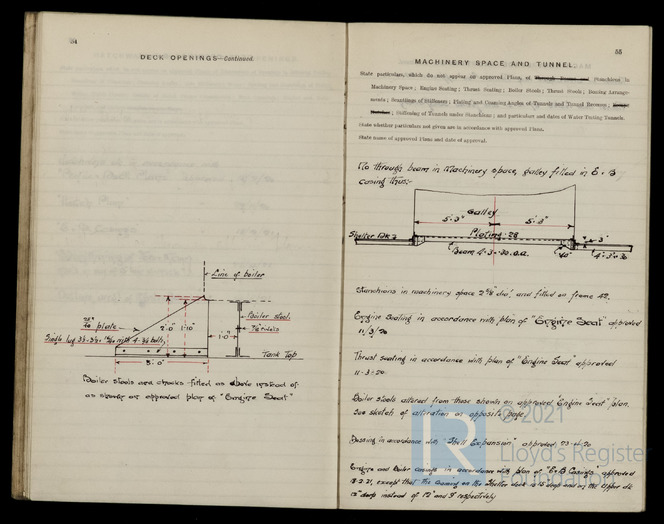 54
DECK OPENINGS—Continued.
Line of boiler
plate
2'.0"
1'.0"
Boiler stool
1'.0"
3'.0"
Tank Top
Boiler stools and chocks fitted as above instead of
as shown on approved plan of "Engine Seat"
55
MACHINERY SPACE AND TUNNEL.
State particulars, which do not appear on approved Plans, of Through Beams and Stanchions in
Machinery Space; Engine Seating; Thrust Seating; Boiler Stools; Thrust Stools; Bossing Arrange-
ments; Scantlings of Stiffeners; Plating and Coaming Angles of Tunnels and Tunnel Recesses;
Stiffening of Tunnels under Stanchions; and particulars and dates of Water Testing Tunnels.
State whether particulars not given are in accordance with approved Plans.
State name of approved Plans and date of approval.
No through beam in Machinery space, galley fitted in E & B
casing thus:-
Galley
5'.3"
5'.3"
Shelter Dk
Plating .28
3"
Beam 4.3.30 o.a.
Stanchions in machinery space dia', and fitted on frame 42.
Engine seating in accordance with plan of "Engine Seat" approved
11/3/20
Thrust seating in accordance with plan of "Engine Seat" approved
11-3-20
Boiler stools altered from those shown on approved "Engine Seat" plan.
See sketch of alteration on opposite page.
Bossing in accordance with "Shell Expansion" approved 23-
Engine and Boiler casings in accordance with plan of "E&B Casings" approved
except that the coaming on the Shelter deck is 15" deep and on the Upper dk
12" deep instead of 12" and 9" respectively
© 2021
Lloyd's Register
Foundation